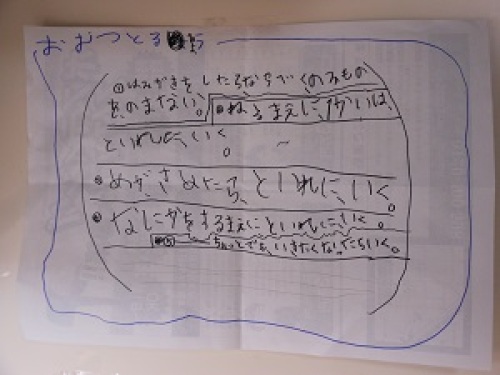 おむつとる
①はみがきをしたらなすべくのみもの
をのまない。②ねるまえに、
といれにいく。
③めがさめたら、といれに、いく。
④なにかをするまえにといれに、いく。
ちょっとでも、いきたくなったらいく。